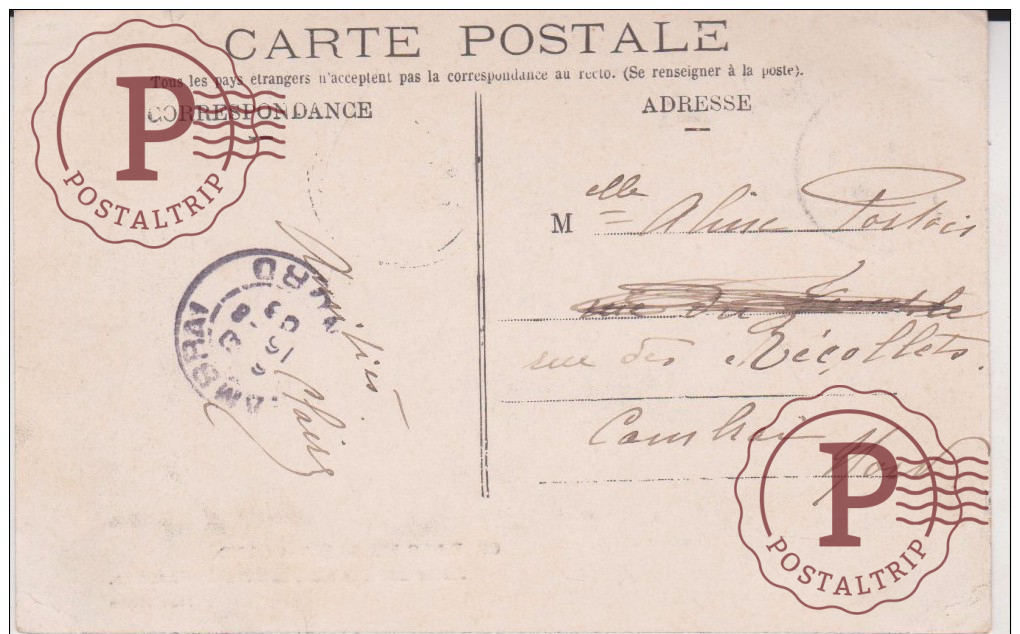 CARTE POSTALE
Tous les pays étrangers n'acceptent pas la correspondance au recto. (Se renseigner à la poste).
CORRESPONDANCE
ADRESSE
Melle Aline
rue des Récollets
Cambrai
Nord
Amitiés
CAMBRAI
NORD
P
POSTALTRIP
P
POSTALTRIP